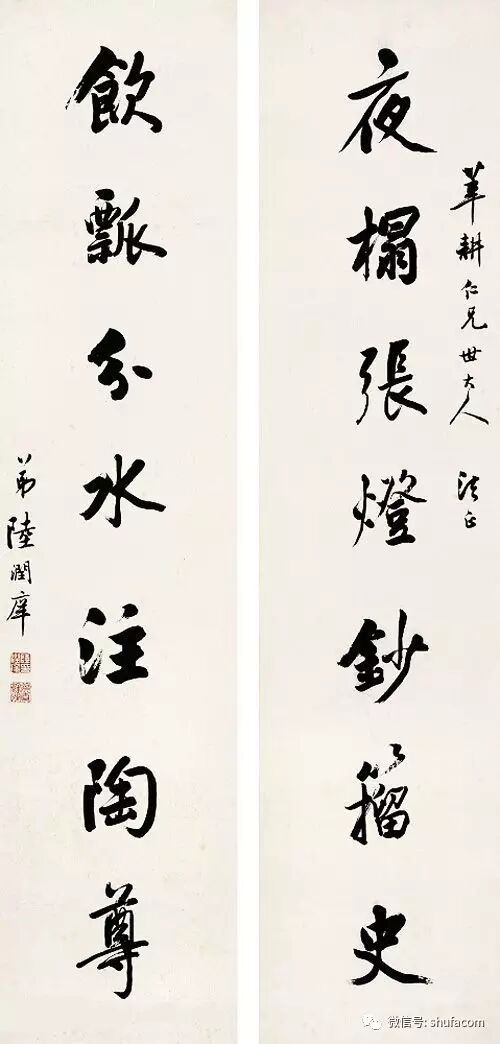 華耕仁兄世大人 法正
夜榻張燈鈔籀史
飲瓢分水注陶尊
弟陸潤庠
微信号: shufacom